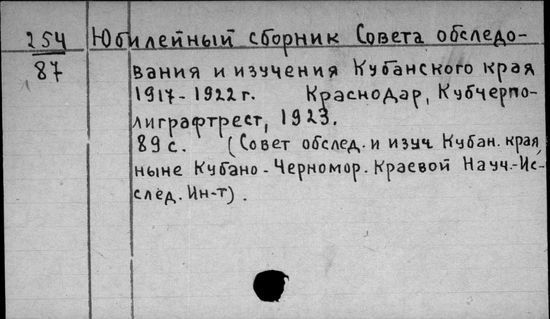 254 Юбилейный сборник Совета обследо-
87 вания и изучения Кубанского края
1917-1922 г. Краснодар, Кубчерпо-
лиграфтрест, 1923.
89 с. (Совет обслед. и изуч Кубан. края,
ныне Кубано-Черномор. Краевой Науч.-Ис-
след. Ин-т).